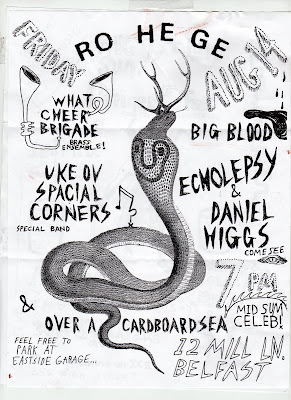 RO HE GE
FRIDAY
AUG 14
WHAT
CHEER
BRIGADE
BRASS
ENSEMBLE!
BIG BLOOD
UKE OV
SPACIAL
CORNERS
SPECIAL BAND
ECHOLEPSY
&
DANIEL
HIGGS
COME SEE
7 PM
MID SUM
CELEB!
& OVER A CARDBOARD SEA
FEEL FREE TO
PARK AT
EASTSIDE GARAGE...
12 MILL LN.
BELFAST